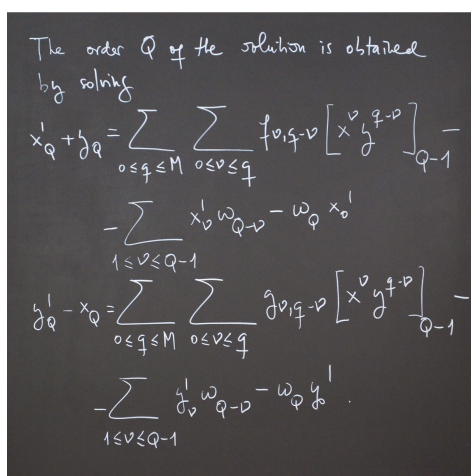 The order Q of the solution is obtained
by solving
x'_Q + y_Q = ∑_{0≤q≤M} ∑_{0≤ν≤q} f_{ν,q-ν} [x^ν y^{q-ν}]_{Q-1} -
- ∑_{1≤ν≤Q-1} x'_ν ω_{Q-ν} - ω_Q x_0'
y'_Q - x_Q = ∑_{0≤q≤M} ∑_{0≤ν≤q} g_{ν,q-ν} [x^ν y^{q-ν}]_{Q-1} -
- ∑_{1≤ν≤Q-1} y'_ν ω_{Q-ν} - ω_Q y_0' .